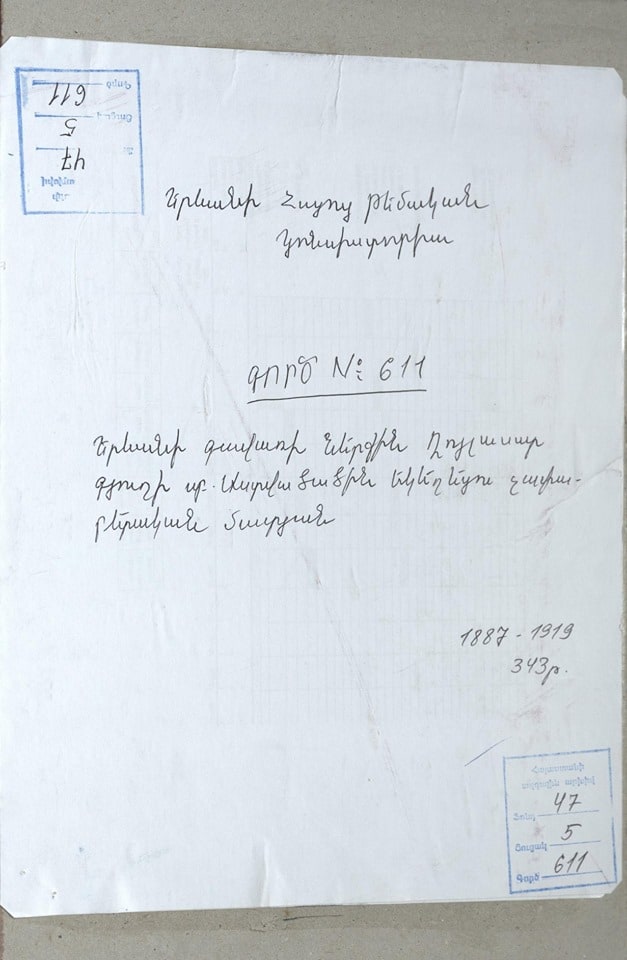 Գործ 611
Ցուցակ 5
47
Երևանի Հայոց թեմական
կոնսիստորիա
ԳՈՐԾ № 611
Երևանի գավառի Ներքին Ղոյլասար
գյուղի սբ. Աստվածածին եկեղեցու չափա-
բերական մատյան
1887 - 1919
343թ.
Հայաստանի
ազգային արխիվ
Ֆոնդ 47
Ցուցակ 5
Գործ 611